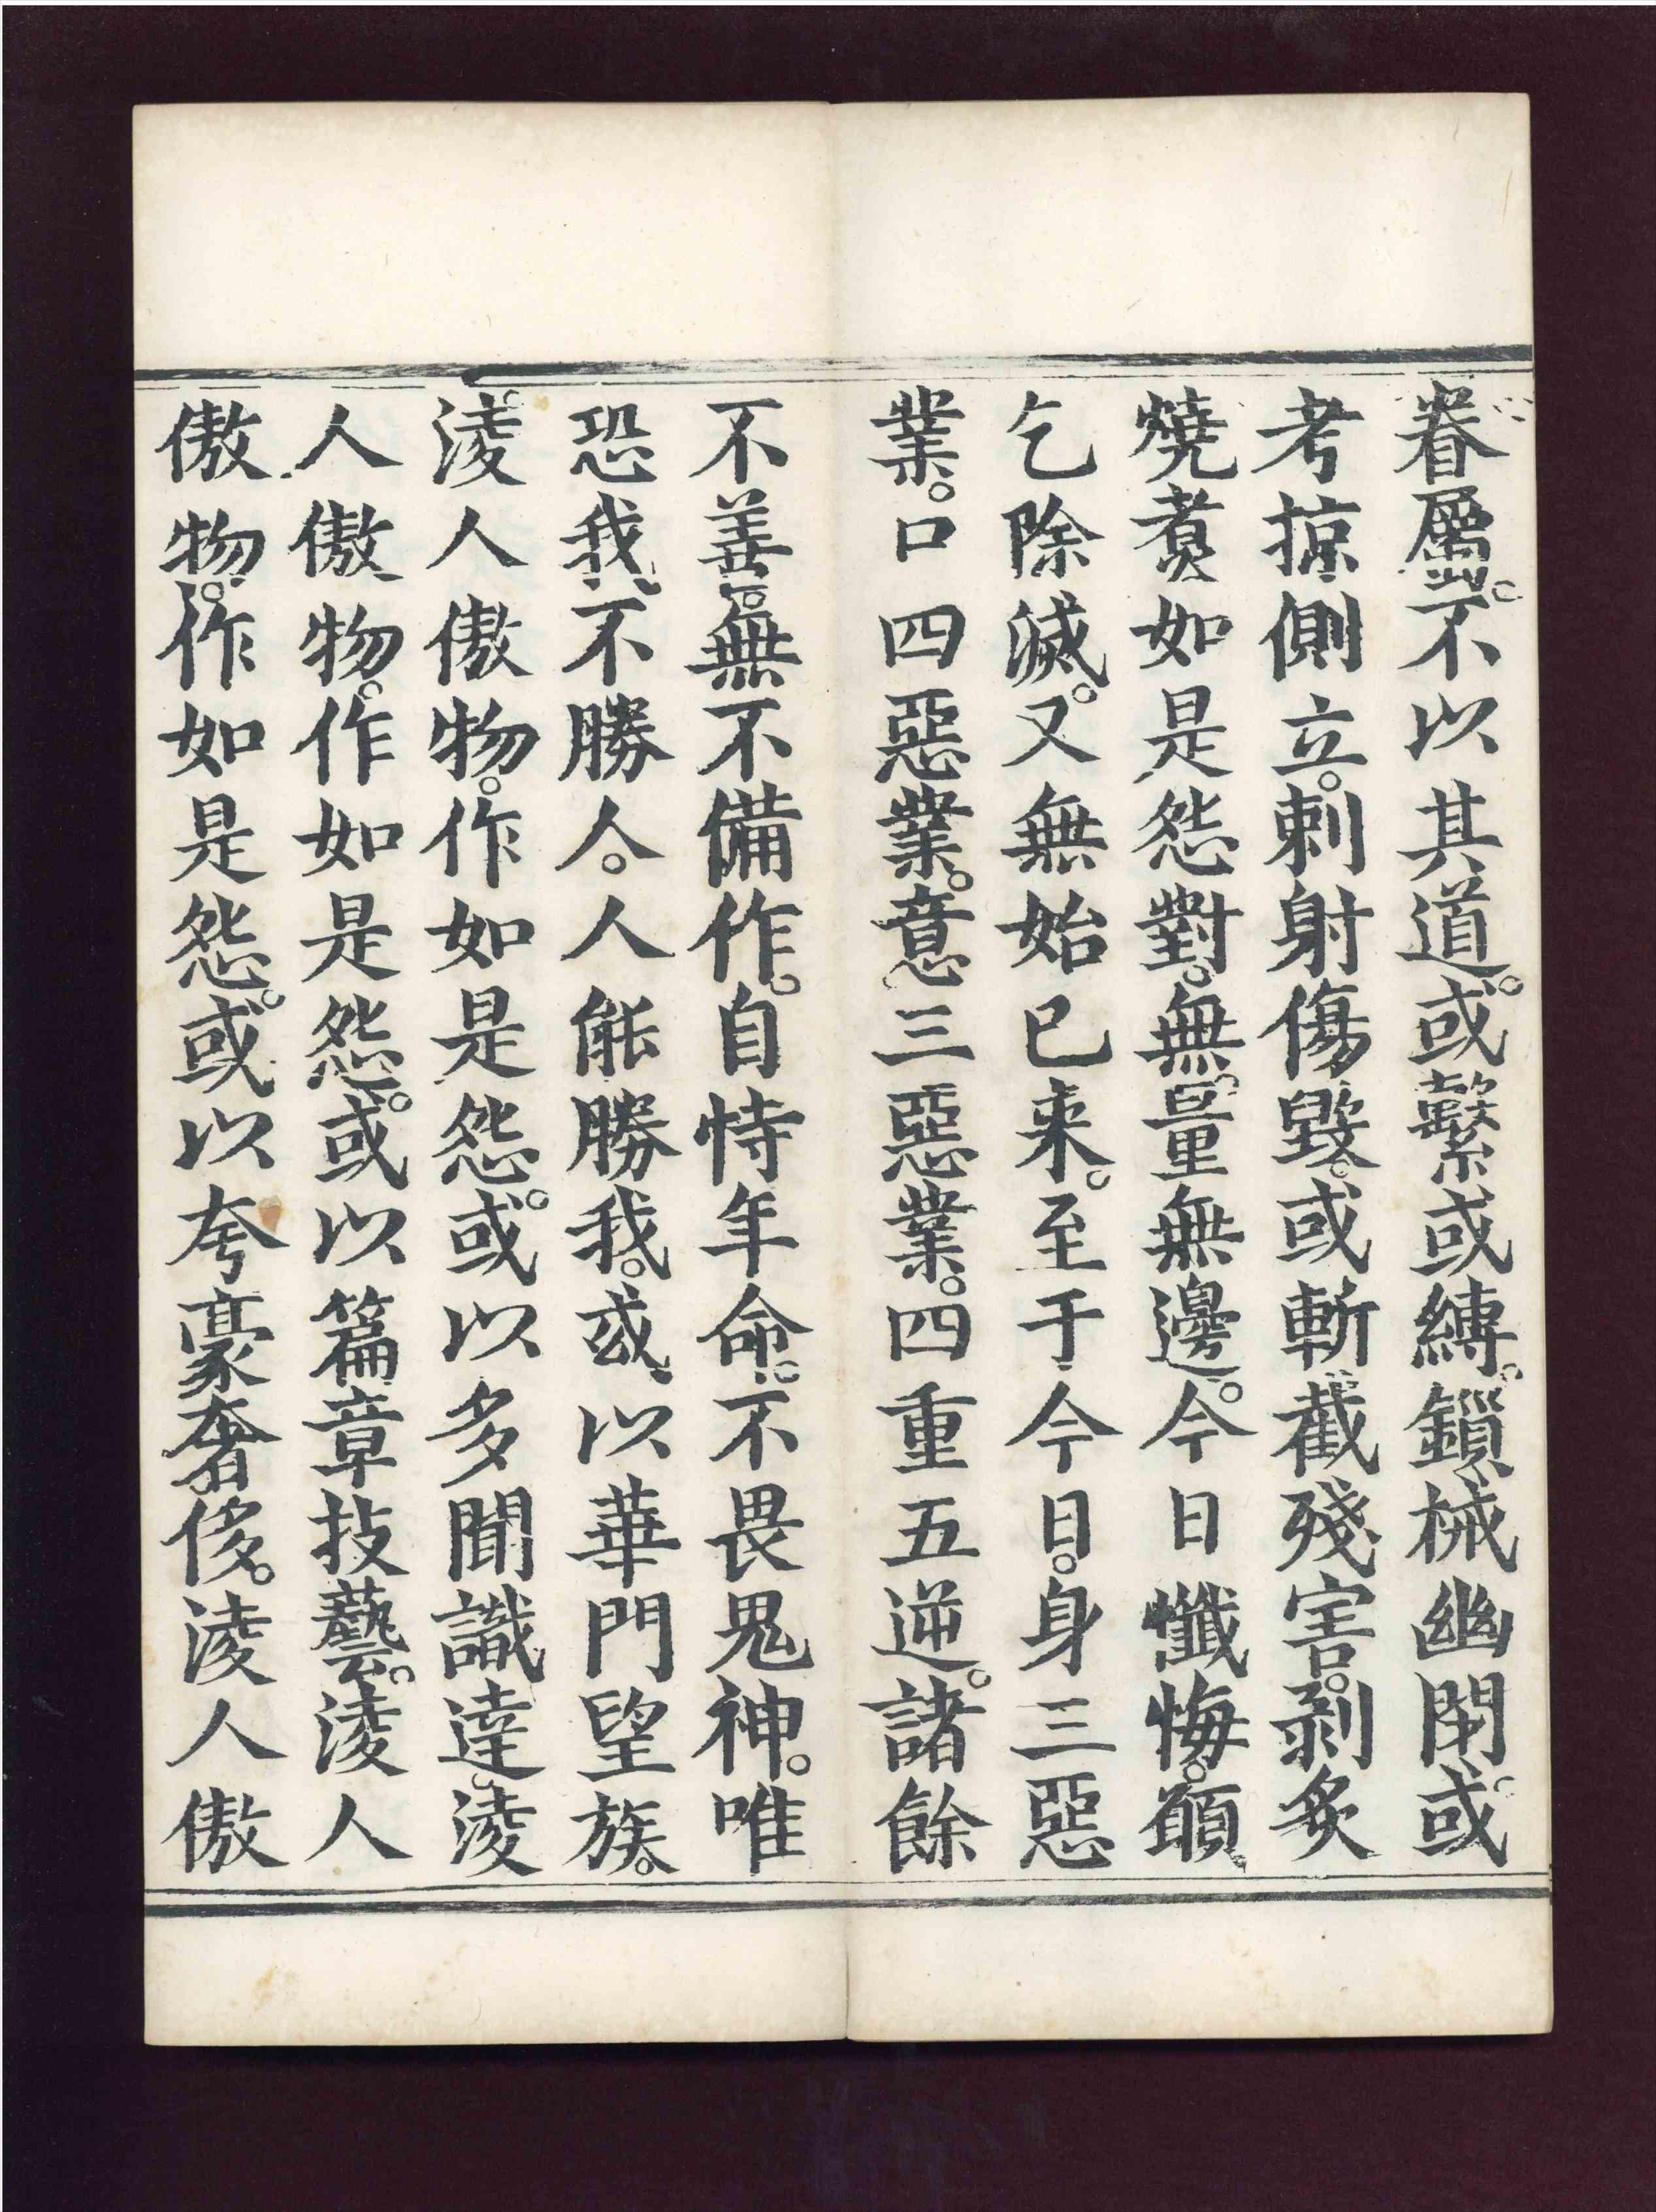 眷屬。不以其道。或繫或縛。鎖械幽閉。或
考掠側立。刺射傷毀。或斬截殘害。剥炙
燒煑如是怨對。無量無邊。今日懺悔。願
乞除滅。又無始已来。至于今日。身三惡
業。口四惡業。意三惡業。四重五逆。諸餘
不善。無不備作。自恃年命。不畏鬼神。唯
恐我不勝人。人能勝我。或以華門望族。
淩人傲物。作如是怨。或以多聞識達。淩
人傲物。作如是怨。或以篇章技藝。淩人
傲物。作如是怨。或以夸豪奢侈。淩人傲